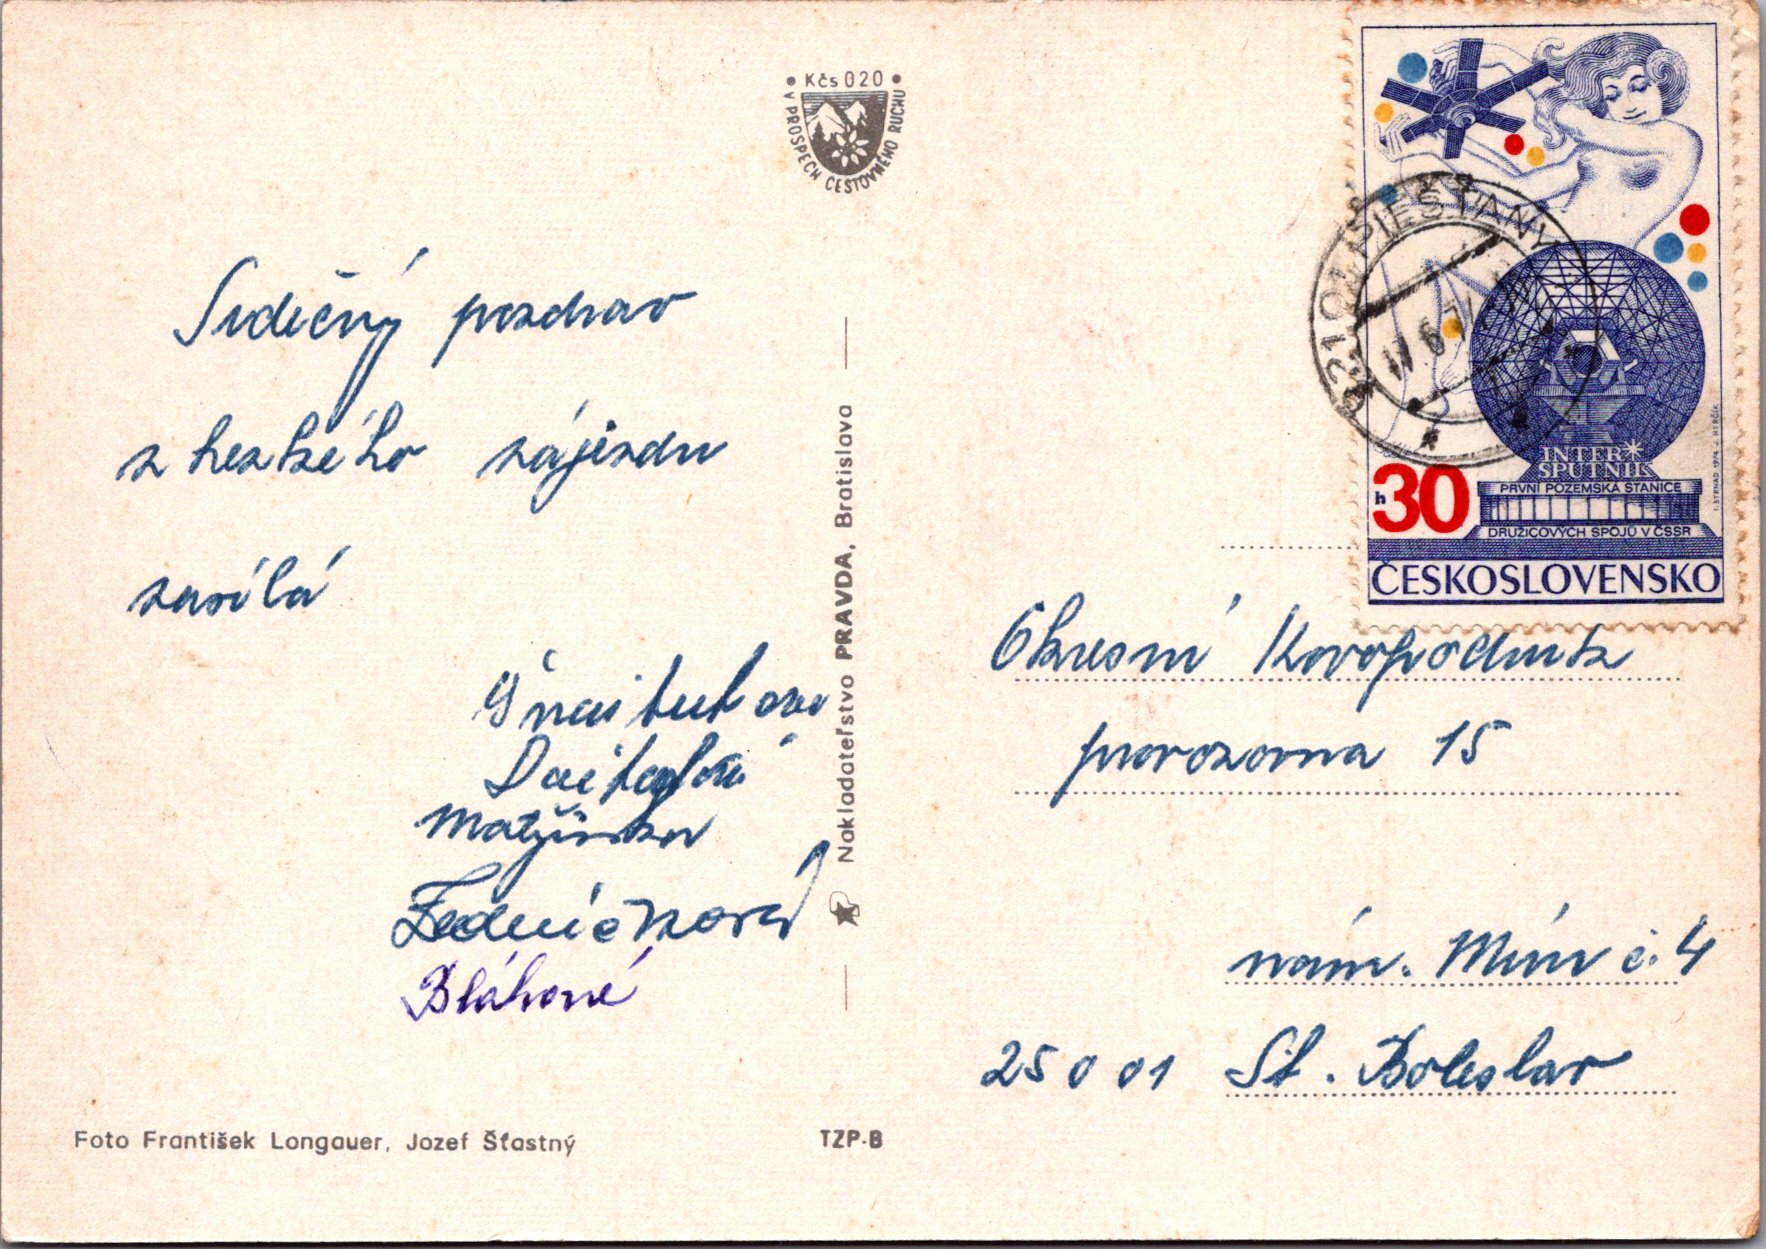 • Kčs 020 •
V PROSPECH CESTOVNÉHO RUCHU
Srdečný pozdrav
z hezkého zájezdu
zasílá
Matyšinka
Bláhové
Foto František Longauer, Jozef Šťastný
TZP-B
Nakladateľstvo PRAVDA, Bratislava
921 01 PIEŠŤANY
h 30
INTER SPUTNIK
PRVNÍ POZEMSKÁ STANICE
DRUŽICOVÝCH SPOJŮ V ČSSR
ČESKOSLOVENSKO
I. STRNAD 1974 J. HERČÍK
Okresní Kovopodnik
provozovna 15
nám. Míru č. 4
250 01 St. Boleslav